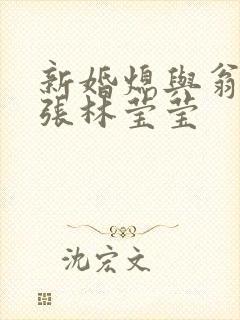 新婚熄與翁
張林莹莹
沈宏文